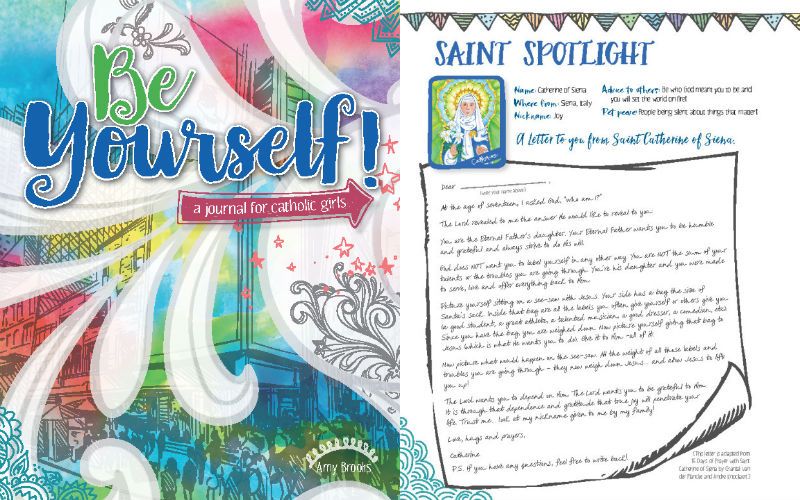 Be
Yourself!
a journal for catholic girls
Amy Brooks
SAINT SPOTLIGHT
Name: Catherine of Siena
Where from: Siena, Italy
Nickname: Joy
Advice to others: Be who God meant you to be and
you will set the world on fire!
Pet peeve: People being silent about things that matter!
Catherine
A Letter to you from Saint Catherine of Siena.
Dear
(write your name above)
At the age of seventeen, I asked God, "Who am I?"
The Lord revealed to me the answer He would like to reveal to you.
You are the Eternal Father's daughter. Your Eternal Father wants you to be humble
and grateful and always strive to do His will.
God does NOT want you to label yourself in any other way. You are NOT the sum of your
talents or the troubles you are going through. You're his daughter and you were made
to serve, live and offer everything back to Him.
Picture yourself sitting on a see-saw with Jesus. Your side has a bag the size of
Santa's sack. Inside that bag are all the labels you often give yourself or others give you
(a good student, a great athlete, a talented musician, a good dresser, a comedian, etc).
Since you have the bag, you are weighed down. Now picture yourself giving that bag to
Jesus which is what He wants you to do. Give it to Him - all of it.
Now picture what would happen on the see-saw. All the weight of all these labels and
troubles you are going through - they now weigh down Jesus... and allow Jesus to lift
you up!
The Lord wants you to depend on Him. The Lord wants you to be grateful to Him.
It is through that dependence and gratitude that true joy will penetrate your
life. Trust me... look at my nickname given to me by my family!
Love, hugs and prayers,
Catherine
P.S. If you have any questions, feel free to write back!
(This letter is adapted from
15 Days of Prayer with Saint
Catherine of Siena by Chantal van
der Plancke and Andre Knockaert.)